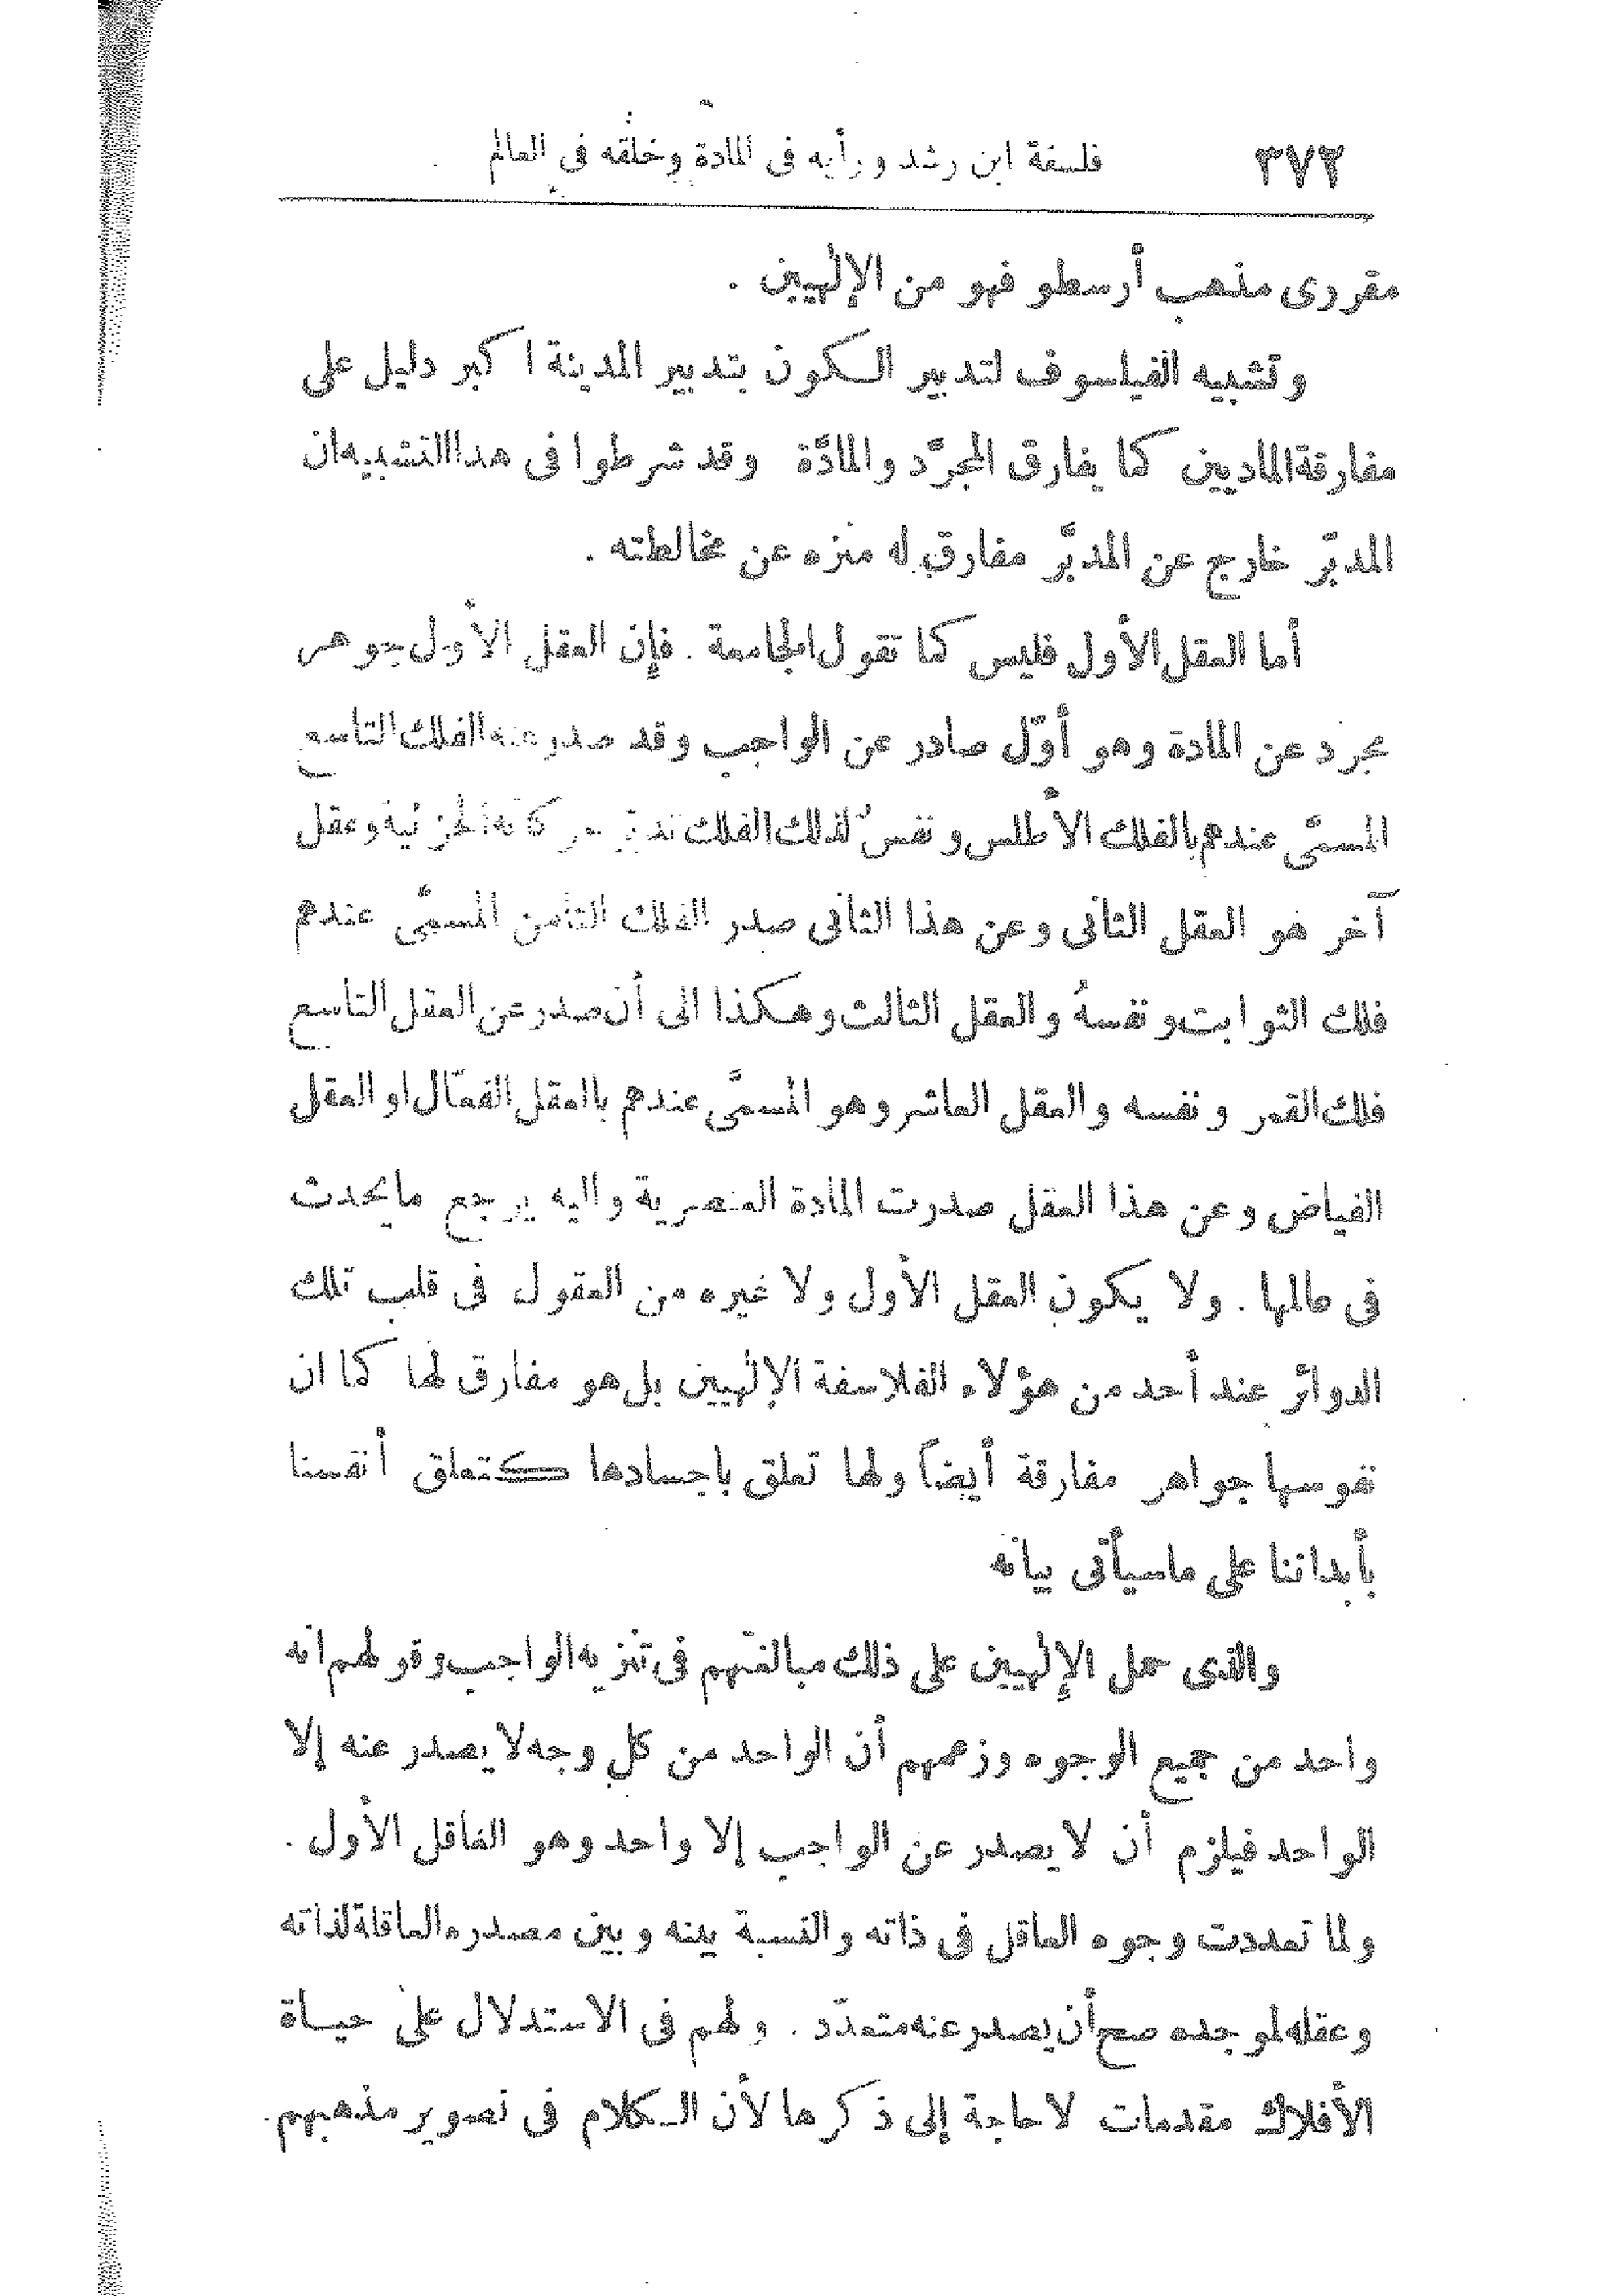 ٣٧٢ فلسفة ابن رشد ورأيه فى المادة وخلقه فى العالم
مقررى مذهب أرسطو فهو من الإلهيين .
وتشبيه الفيلسوف لتدبير الكون بتدبير المدينة اكبر دليل على
مفارقة الماديين كما يفارق المجرَّد والمادَّة وقد شرطوا فى هذا التشبيه ان
المدبِّر خارج عن المدبَّر مفارق له منزه عن مخالطته .
أما العقل الأول فليس كما تقول الجامعة . فإن العقل الأول جوهر
مجرد عن المادة وهو أوّل صادر عن الواجب وقد صدر عنه الفلك التاسع
المسمَّى عندهم بالفلك الأطلس ونفسٌ لذلك الفلك حركاته الجزئية وعقل
آخر هو العقل الثانى وعن هذا الثانى صدر الفلك الثامن المسمَّى عندهم
فلك الثوابت ونفسهُ والعقل الثالث وهكذا الى أن صدر عن العقل التاسع
فلك القمر ونفسه والعقل العاشر وهو المسمَّى عندهم بالعقل الفعّال او العقل
الفياض وعن هذا العقل صدرت المادة العنصرية واليه يرجع ما يحدث
فى عالمها . ولا يكون العقل الأول ولا غيره من العقول فى قلب تلك
الدوائر عند أحد من هؤلاء الفلاسفة الإلهيين بل هو مفارق لها كما ان
نفوسها جواهر مفارقة أيضاً ولها تعلق باجسادها كتعلق أنفسنا
بأبداننا على ماسيأتى بيانه
والذى حمل الإلهيين على ذلك مبالغتهم فى تنزيه الواجب وقولهم انه
واحد من جميع الوجوه وزعمهم أن الواحد من كل وجه لا يصدر عنه إلا
الواحد فيلزم أن لا يصدر عن الواجب إلا واحد وهو العاقل الأول .
ولما تعددت وجوه العاقل فى ذاته والنسبة بينه وبين مصدره العاقلة لذاته
وعقله لموجده صح أن يصدر عنه متعدّد . ولهم فى الاستدلال على حياة
الأفلاك مقدمات لا حاجة إلى ذكرها لأن الكلام فى تصوير مذهبهم